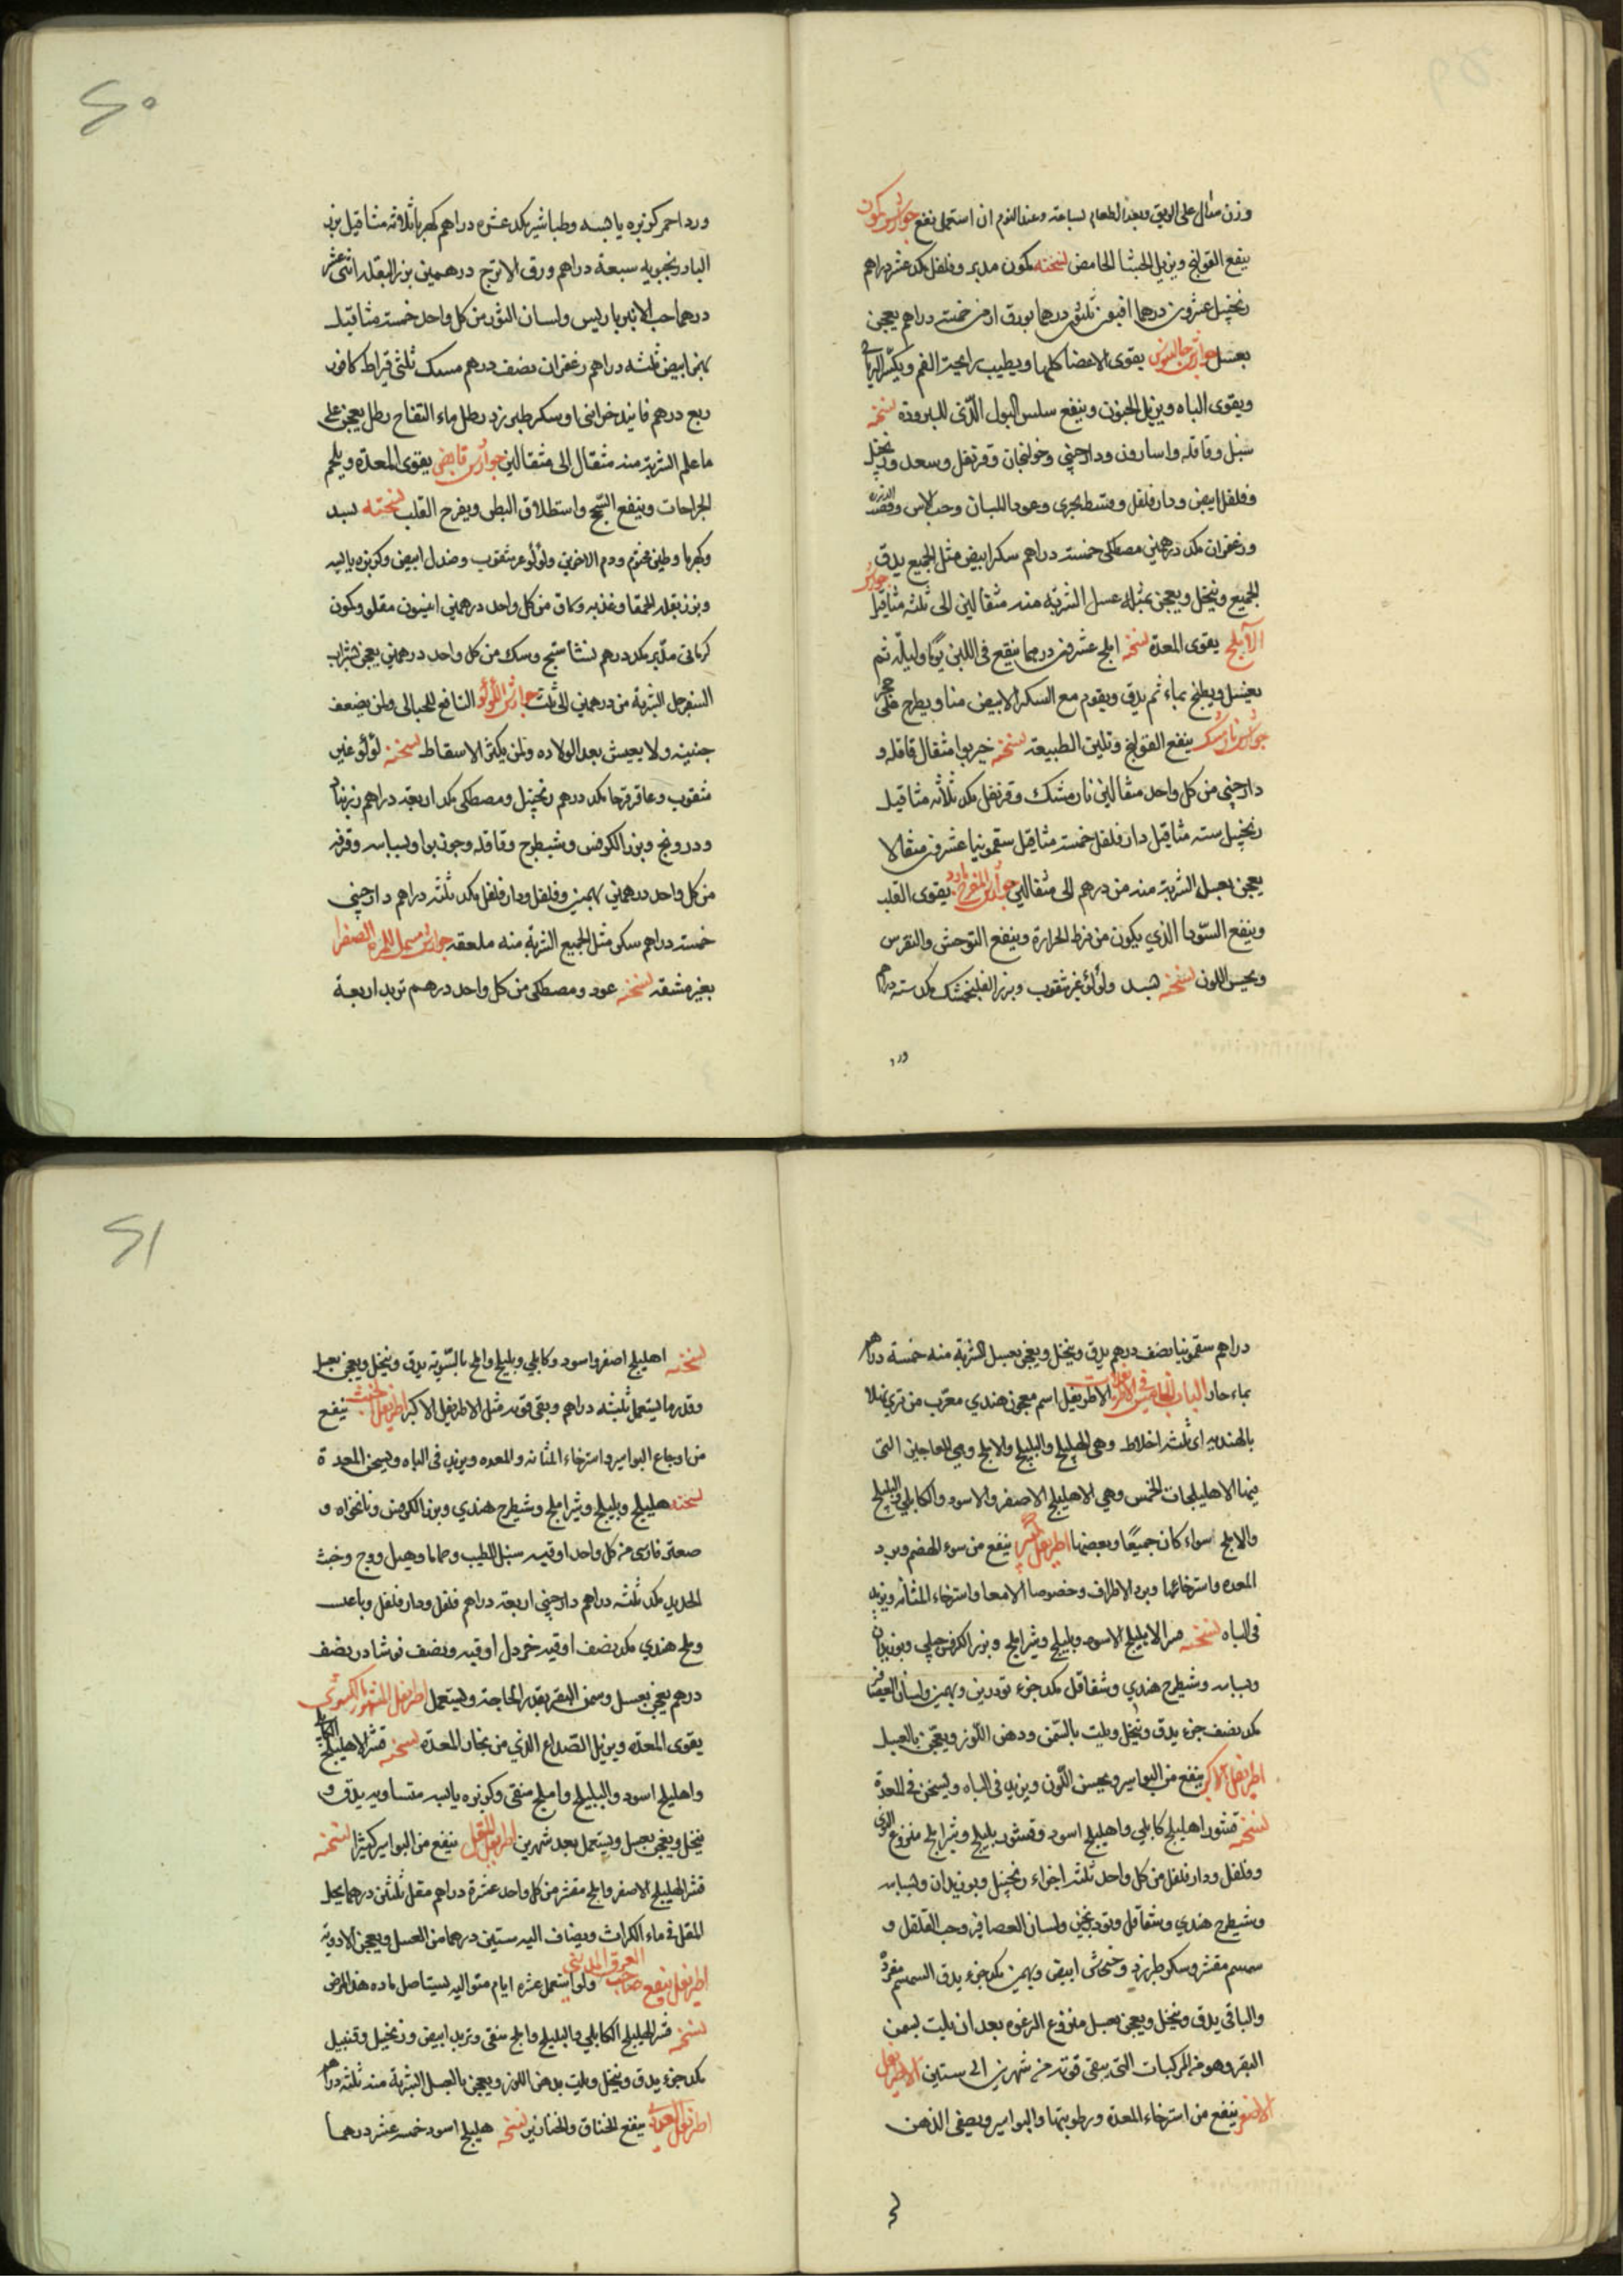 وزن مثقال على الريق وبعد الطعام بساعة وعند النوم ان استعمل نفع جوارش كمون
ينفع القولنج ويزيل الجشا الحامض نسخته كمون مدبر وفلفل مكد عشر دراهم
زنجبيل عشرون درهما افتيمون ثلثون درهما بورق ارمنى خمسة دراهم يعجن
بعسل جوارش جالينوس يقوى الاعضا كلها ويطيب رايحة الفم ويكسر الرياح
ويقوى الباه ويزيل الجنون وينفع سلس البول الذى للبرودة نسخته
سنبل وقاقله واسارون ودارچينى وخولنجان وقرنفل وسعد وزنجبيل
وفلفل ابيض ودارفلفل وقسط بحرى وعود اللبان وحب الاس وقصب الذريرة
وزعفران مكد درهمين مصطكى خمسة دراهم سكر ابيض مثل الجميع يدق
الجميع وينخل ويعجن بمثله عسل الشربة منه مثقالين الى ثلثه مثاقيل جوارش
الآملج يقوى المعدة نسخته املج عشرون درهما ينقع فى اللبن يوما وليلة ثم
يغسل ويطبخ بماء ثم يدق ويقوم مع السكر الابيض منا ويطرح على حجر
جوارش نارمشك ينفع القولنج وتليين الطبيعة نسخته خربوا مثقال قاقله و
دارچينى من كل واحد مثقالين نارمشك وقرنفل مكد ثلاثه مثاقيل
زنجبيل سته مثاقيل دارفلفل خمسة مثاقيل سقمونيا عشرون مثقالا
يعجن بعسل الشربة منه من درهم الى مثقالين جوارش المفرح بارد يقوى القلب
وينفع السودا الذي يكون من فرط الحرارة وينفع التوحش والنقرس
ويحسن اللون نسخته بسد ولؤلؤ غير مثقوب وبزر الفلنجمشك مكد سته دراهم
ورد
ورد احمر كزبره يابسه وطباشير مكد عشره دراهم كهربا ثلاثه مثاقيل بزر
البادرنجبويه سبعة دراهم ورق الاترج درهمين بزر البقله اثنى عشر
درهما حب الانبرباريس ولسان الثور من كل واحد خمسة مثاقيل
بهمن ابيض ثلثه دراهم زعفران نصف درهم مسك ثلثى قيراط كافور
ربع درهم فانيد خزائنى او سكر طبرزد رطل ماء التفاح رطل يعجن على
ما علم الشربة منه مثقال الى مثقالين جوارش قابض يقوى المعدة ويلحم
الجراحات وينفع السحج واستطلاق البطن ويفرح القلب نسخته بسد
وكهربا وطين مختوم ودم الاخوين ولؤلؤ غير مثقوب وصندل ابيض وكزبره يابسه
وبزر بقله الحمقا وغذبه وسماق من كل واحد درهمين انيسون مقلو وكمون
كرمانى مدبر مكد درهم نشا سنج وسك من كل واحد درهمين يعجن بشراب
السفرجل الشربة من درهمين الى ثلث جوارش اللؤلؤ النافع للحبالى ولمن يضعف
جنينه ولا يعيش بعد الولاده ولمن يكثر الاسقاط نسخته لؤلؤ غير
مثقوب وعاقرقرحا مكد درهم زنجبيل ومصطكى مكد اربعة دراهم زرنباد
ودرونج وبزر الكرفس وشيطرج وقاقله وجوزبوا وبسباسه وقرفه
من كل واحد درهمين بهمين وفلفل ودارفلفل مكد ثلثه دراهم دارچينى
خمسة دراهم سكر مثل الجميع الشربة منه ملعقه جوارش مسهل المرة الصفرا
بغير مشقه نسخته عود ومصطكى من كل واحد درهم تربد اربعة
دراهم سقمونيا نصف درهم يدق وينخل ويعجن بعسل الشربة منه خمسة دراهم
بماء حار الباب الخامس فى الاطريفلات الاطريفل اسم معجون هندي معرب من ترى پهلا
بالهنديه اى ثلثه اخلاط وهى الهليلج والبليلج والاملج وهى المعاجين التى
فيها الاهليلجات الخمس وهى الاهليلج الاصفر والاسود والكابلي والبليلج
والاملج سواء كان جميعًا وبعضها اطريفل كبير ينفع من سوء الهضم وبرد
المعده واسترخائها وبرد الاطراف وخصوصا الامعا واسترخاء المثانه ويزيد
فى الباه نسخته قشر الاهليلج الاسود وبليلج وشيراملج وبزر الكرفس جبلى وبوزيدان
وبسباسه وشيطرج هندي وشقاقل مكد جزء تودرين وبهمين ولسان العصافير
مكد نصف جزء يدق وينخل ويلت بالسمن ودهن اللوز ويعجن بالعسل
اطريفل الاكبر ينفع من البواسير ويحسن اللون ويزيد فى الباه ويسخن فى المعدة
نسخته قشور اهليلج كابلي واهليلج اسود وقشور بليلج وشيراملج منزوع النوى
وفلفل ودارفلفل من كل واحد ثلثه اجزاء زنجبيل وبوزيدان وبسباسه
وشيطرج هندي وشقاقل وتودرنجين ولسان العصافير وحب القلقل و
سمسم مقشر وسكر طبرزد وخشخاش ابيض وبهمن مكد جزء يدق السمسم مفردة
والباقى يدق وينخل ويعجن بعسل منزوع الرغوه بعد ان يلت بسمن
البقر وهو من المركبات التى يبقى قوته من شهرين الى سنتين الاطريفل
الاصغر ينفع من استرخاء المعدة ورطوبتها والبواسير ويصفى الذهن
نسخته اهليلج اصفر واسود وكابلي وبليلج واملج بالسوية يدق وينخل ويعجن بعسل
وقدر ما يستعمل ثلثه دراهم ويبقى قوته مثل الاطريفل الاكبر اطريفل الخبث ينفع
من اوجاع البواسير واسترخاء المثانه والمعده ويزيد فى الباه ويسخن المعدة
نسخته هليلج وبليلج وشيراملج وشيطرج هندي وبزر الكرفس ونانخواه و
صعتر فارسى من كل واحد اوقيه سنبل الطيب وحماما وهيل ووج وخبث
الحديد مكد ثلثه دراهم دارچينى اربعة دراهم فلفل ودارفلفل
وملح هندي مكد نصف اوقيه خردل اوقيه ونصف نوشادر نصف
درهم يعجن بعسل وسمن البقر بقدر الحاجة ويستعمل اطريفل المشهور بالكسروى
يقوى المعدة ويزيل الصداع الذي من بخار المعدة نسخته قشر الاهليلج الكابلي
واهليلج اسود والبليلج واملج منقى وكزبره يابسه متساويه يدق و
ينخل ويعجن بعسل ويستعمل بعد شهرين اطريفل المقل ينفع من البواسير كثيرا نسخته
قشر الهليلج الاصفر واملج مقشر من كل واحد عشرة دراهم مقل ثلثين درهما يحل
المقل فى ماء الكراث ويضاف اليه ستين درهما من العسل ويعجن الادوية
اطريفل ينفع صاحب العرق المدينى ولو استعمل عشره ايام متواليه يستاصل ماده هذا المرض
نسخته قشر الهليلج الكابلي والبليلج واملج منقى وتربد ابيض وزنجبيل وقنبيل
مكد جزء يدق وينخل ويلت بدهن اللوز ويعجن بالعسل الشربة منه ثلثه دراهم
اطريفل الغددى ينفع الخناق والخنازير نسخته هليلج اسود خمسه عشر درهما